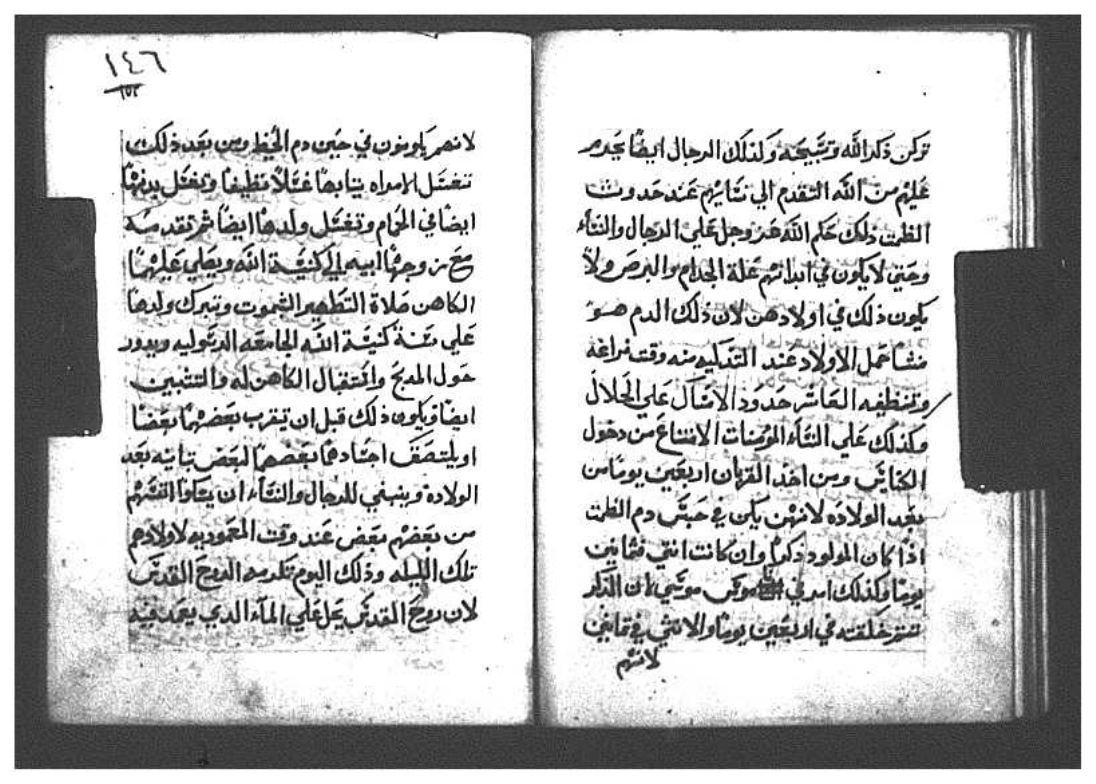 تركن ذكر الله وتسبيحه ولذلك الرجال ايضًا يحرم
عليهم من الله التقدم الي نسايهم عند حدوث
الطمث ذلك حكم الله عز وجل على الرجال والنساء
وحتي لا يكون في ابدانهم علة الجدام والبرص ولا
يكون ذلك في اولادهن لان ذلك الدم هو
منشا حمل الاولاد عند وقت فراغه
وتنظفيه العاشر حدود الامساك علي الحلال
وكذلك علي النساء المومنات الامتناع من دخول
الكنايس ومن اخد القربان اربعين يومًا من
بعد الولاده لانهن يكن في حبس دم الطمث
اذا كان المولود ذكرًا وان كانت انتي فتمانين
يومًا وكذلك امر في موسي لان الذكر
تتم خلقته في اربعين يومًا والانتي في تمانين
لانهم
١٤٦
١٥٢
لانهم يكونون في حين دم الحيظ ومن بعد ذلك
تغتسل الامراه بتيابها غسلاً نظيفًا وتغسل بدنها
ايضًا في الحمام وتغسل ولدها ايضًا ثم تقدمه
مع زوجها ابيه الي كنيسة الله ويصلي عليهما
الكاهن صلاة التطهير وتبرك ولدها
علي كنيسة الله الجامعه الرسوليه ويدور
حول المدبح واستقبال الكاهن له
ايضًا ويكون ذلك قبل ان يتقرب بعضهما بعضًا
او يلتصق اجسادهما بعضها لبعض تانيه بعد
الولادة وينبغي للرجال والنساء ان انفسهم
من بعضهم بعض عند وقت المعموديه لاولادهم
تلك الليله وذلك اليوم تكرمه الروح القدس
لان روح القدس يحل علي الماء الدي يعمد فيه